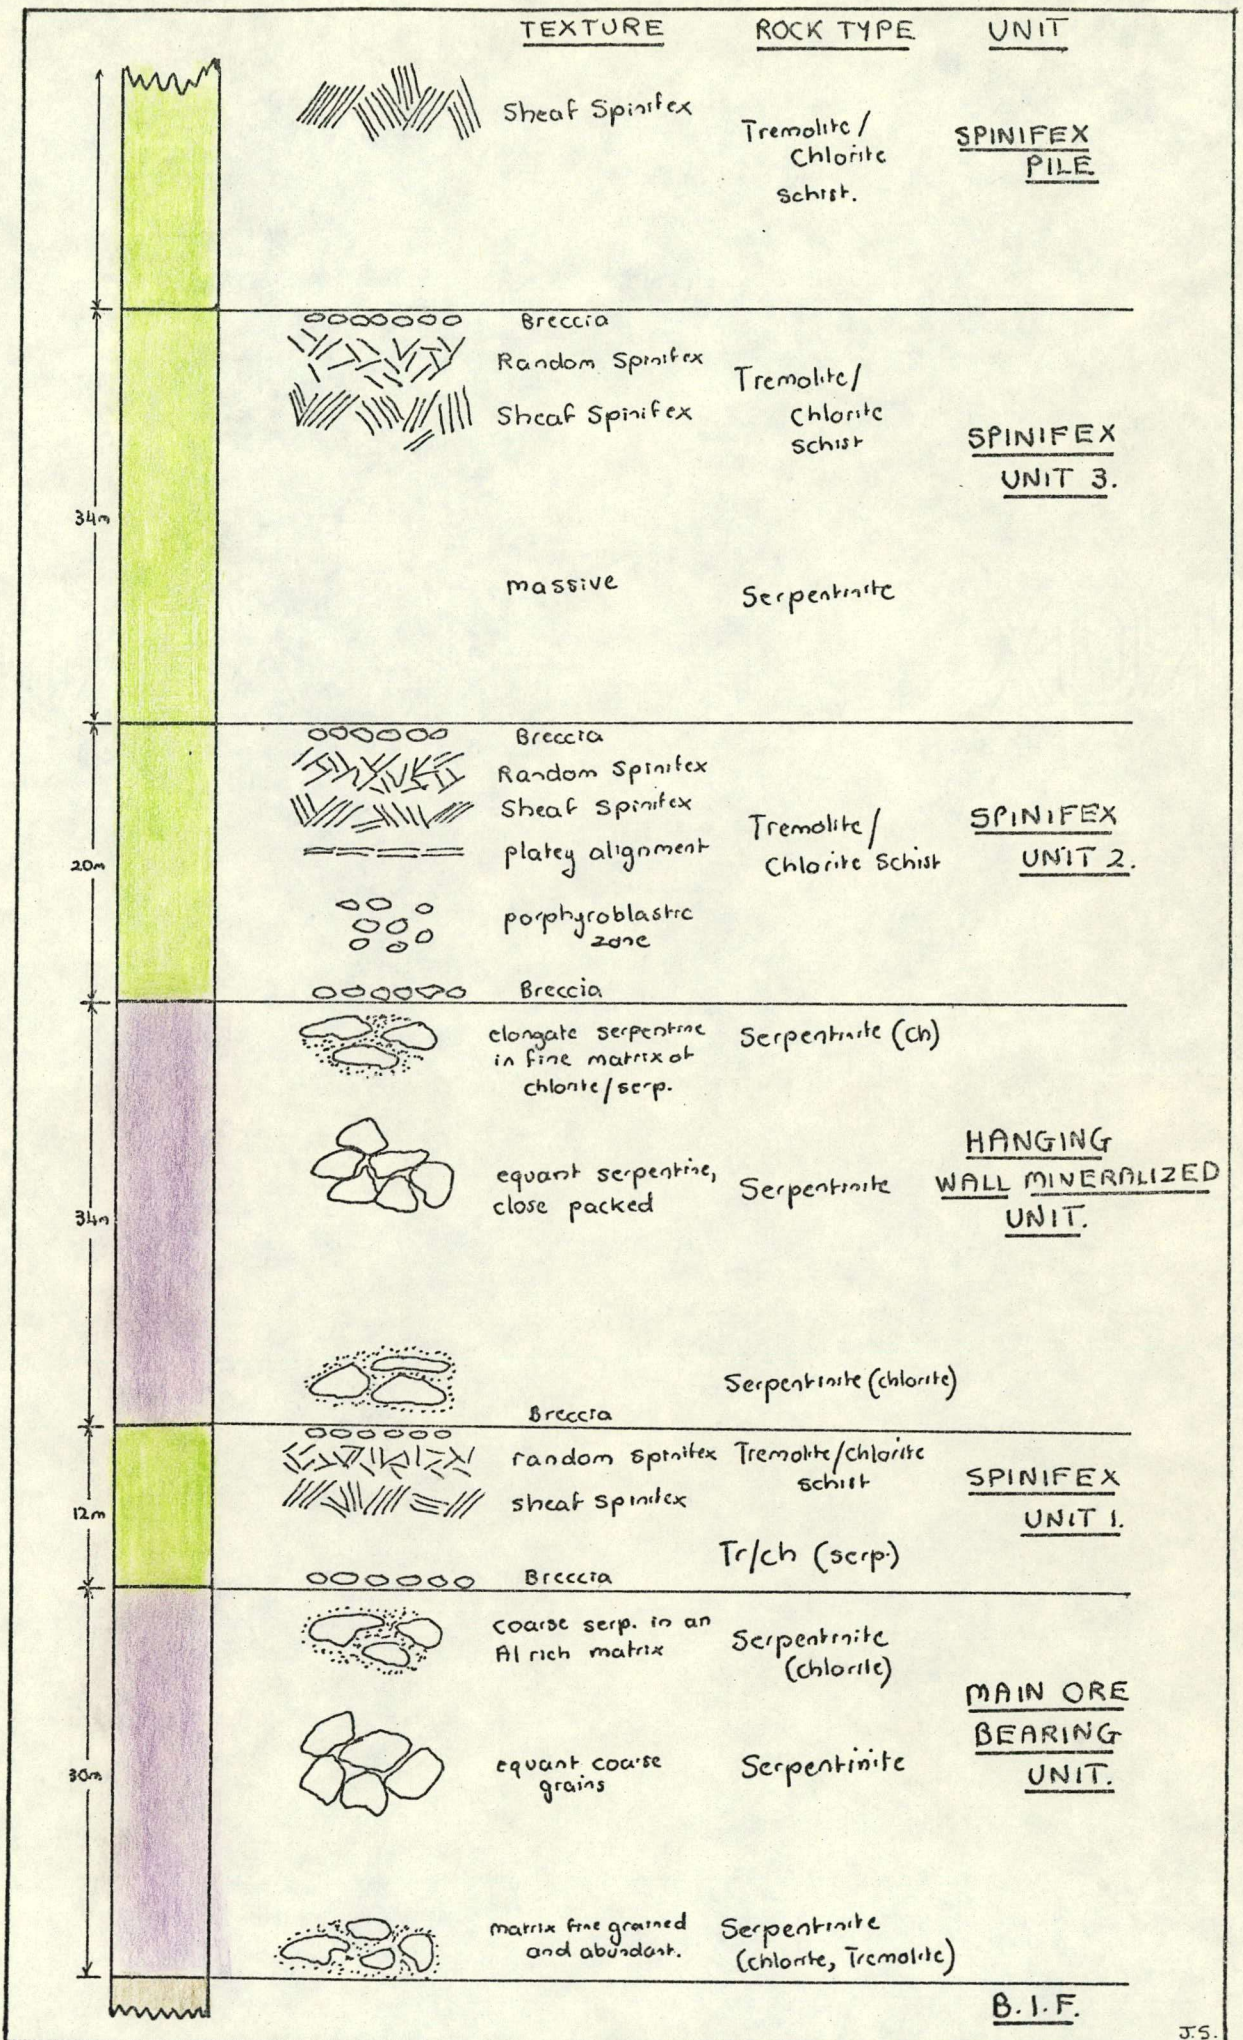 TEXTURE ROCK TYPE UNIT
Sheaf Spinifex
Tremolite/
Chlorite
schist.
SPINIFEX
PILE
Breccia
Random Spinifex
Sheaf Spinifex
Tremolite/
Chlorite
schist
SPINIFEX
UNIT 3.
34m
massive
Serpentinite
Breccia
Random Spinifex
Sheaf Spinifex
platey alignment
porphyroblastic
zone
Breccia
Tremolite/
Chlorite Schist
SPINIFEX
UNIT 2.
20m
elongate serpentine
in fine matrix of
chlorite/serp.
Serpentinite (Ch)
equant serpentine,
close packed
Serpentinite
HANGING
WALL MINERALIZED
UNIT.
34m
Serpentinite (chlorite)
Breccia
random spinifex
sheaf spinifex
Tremolite/chlorite
schist
SPINIFEX
UNIT 1.
12m
Tr/ch (serp.)
Breccia
coarse serp. in an
Al rich matrix
Serpentinite
(chlorite)
MAIN ORE
BEARING
UNIT.
equant coarse
grains
Serpentinite
30m
matrix fine grained
and abundant.
Serpentinite
(chlorite, Tremolite)
B.I.F.
J.S.